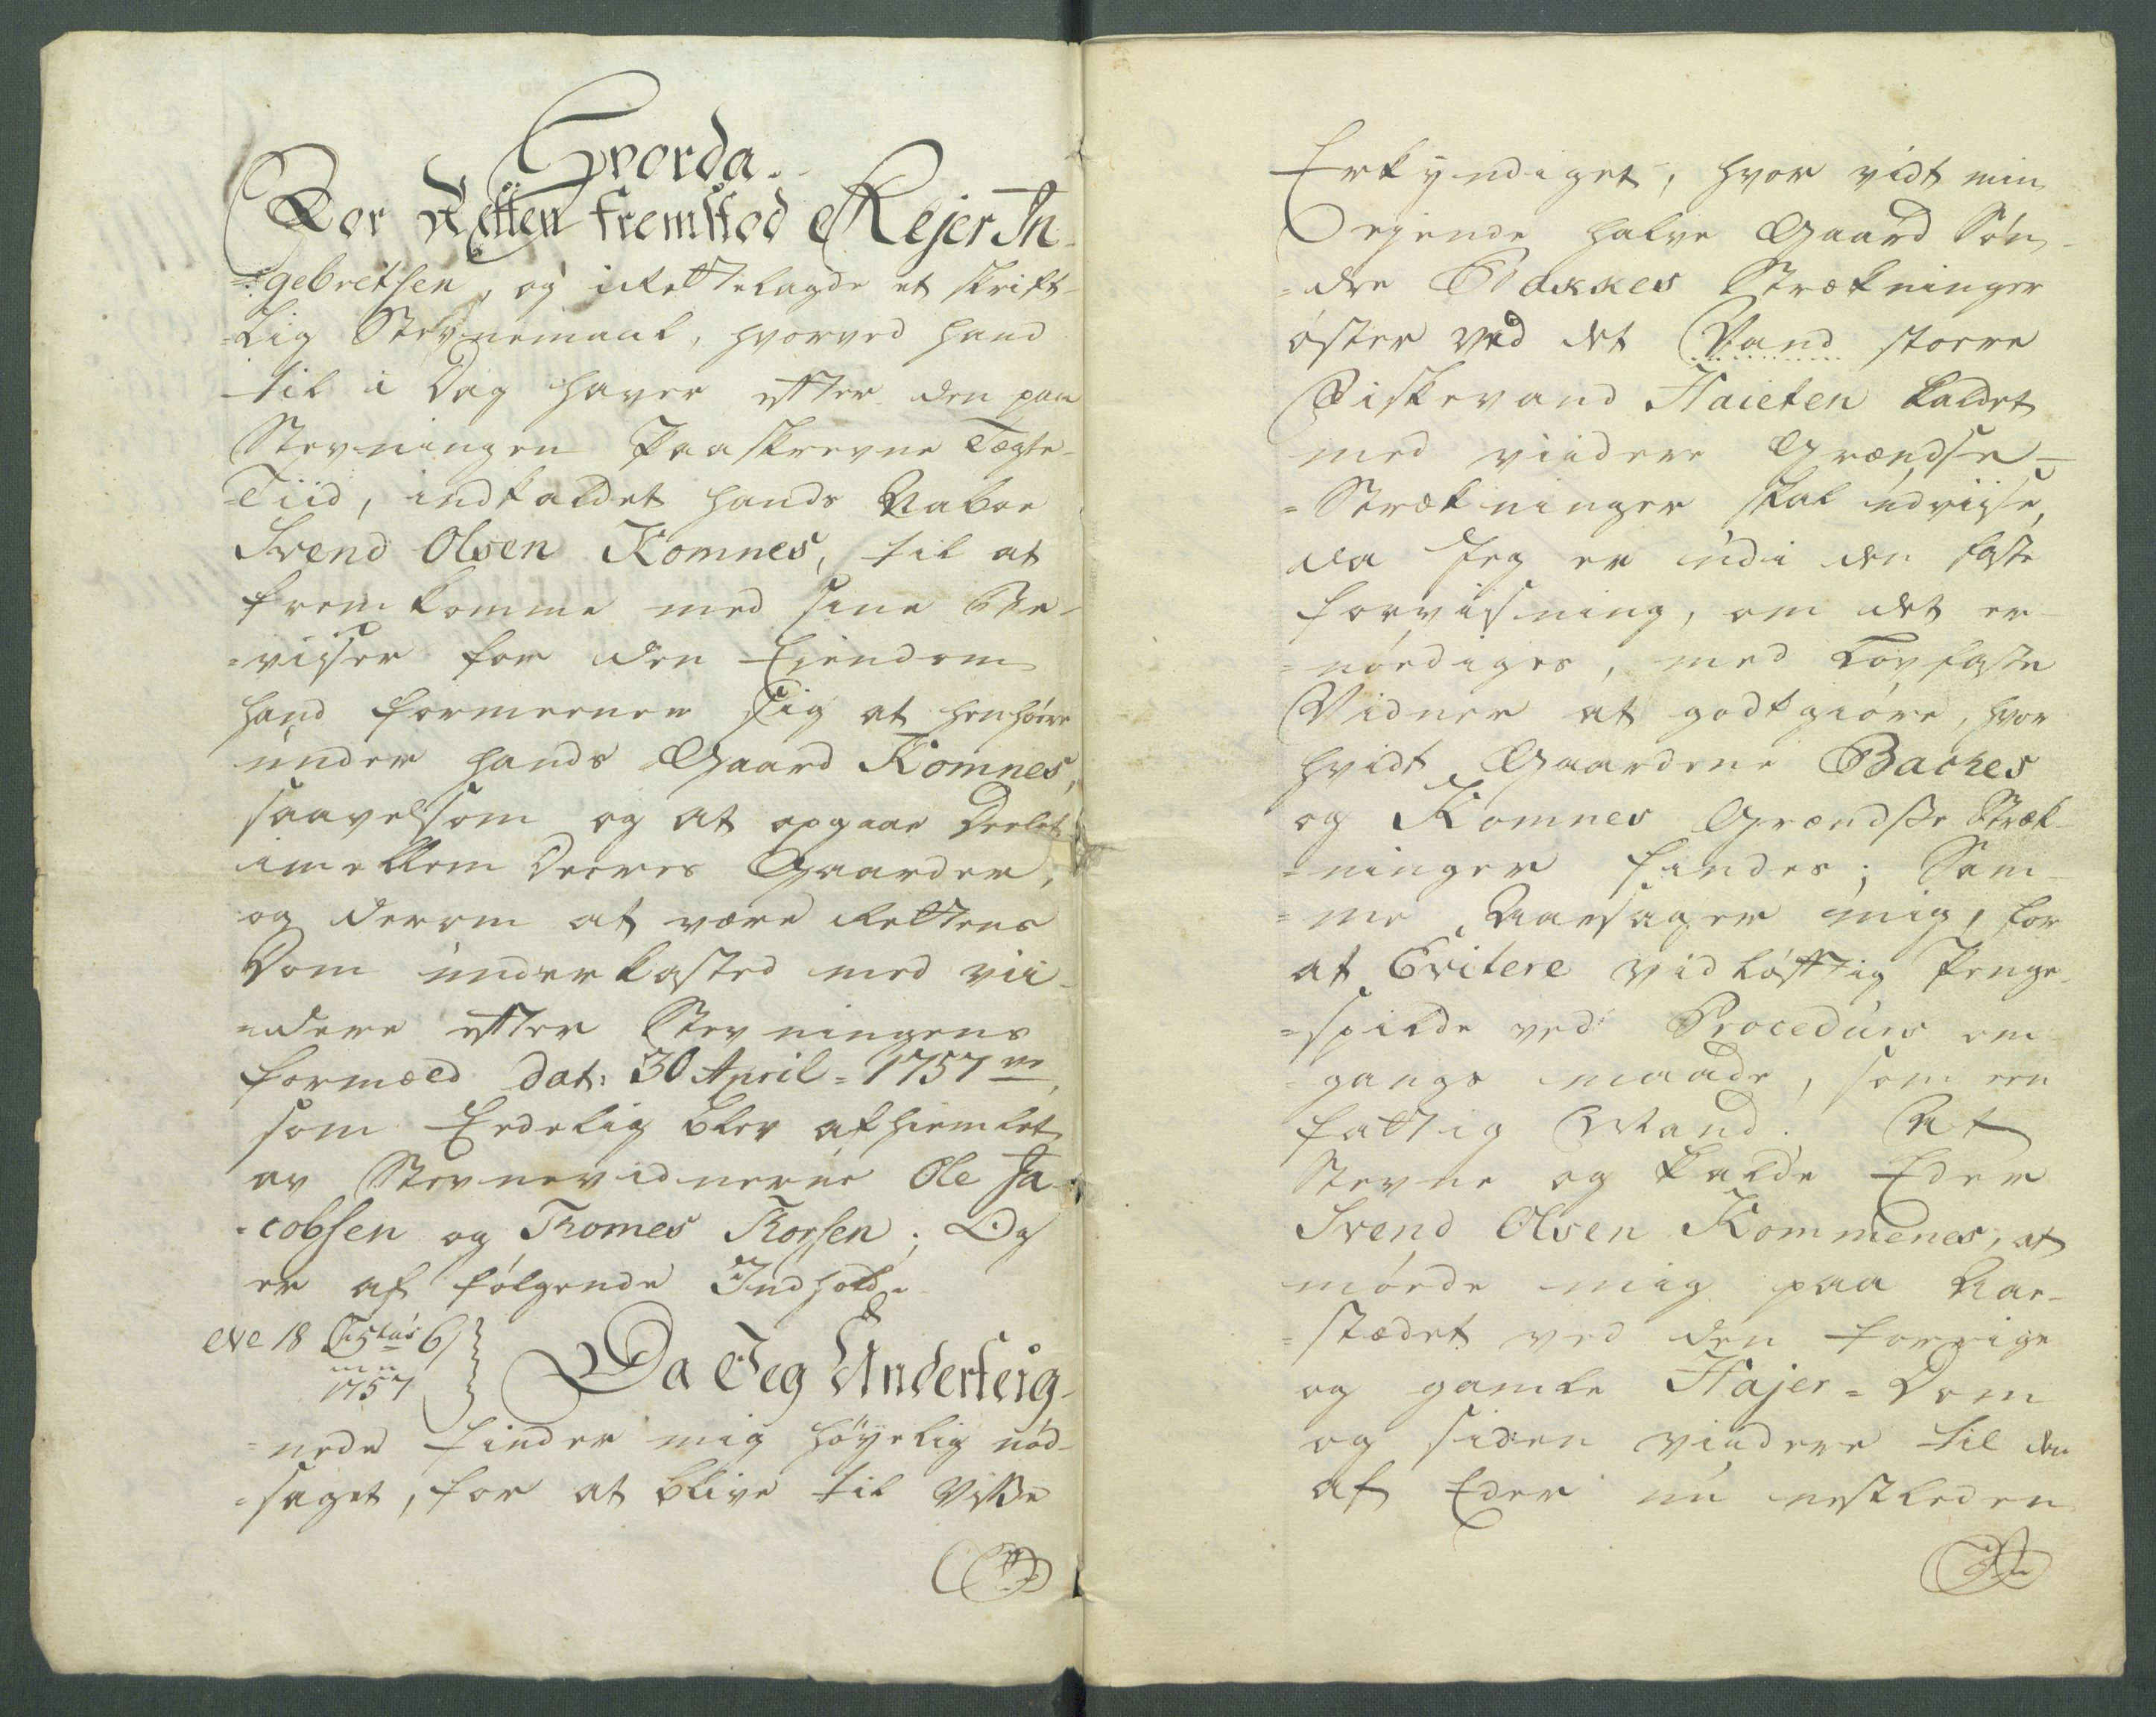 Hvorda
For Retten fremstod Rejer In-
=gebretsen, og i Rettelagde et skrift-
=lig Stevnemaal, hvorved hand
til i Dag haver effter den paa
Stevningen Paaskrevne Tægte-
=Tiid, indkaldet hands Naboe
Svend Olsen Komnes, til at
fremkomme med sine Be-
=viiser for den Eiendom
hand formeener sig at henhøre
under hands Gaard Komnes,
saavelsom og at opgaae Deelet
imellem Deeres Gaarder,
og derom at være Rettens
Dom underkasted med vii-
=dere effter Stevningens
formæld dat: 30 April = 1757 ve,
som Eedelig blev afhiemlet
av Stevnevidnerne Ole Ja-
=cobsen og Thomes Thorsen; Og
er af følgende Indhold.
No 18 6
1757
Da Jeg Underteig-
=nede finder mig høyelig nød-
=saget, for at blive til Visse
Erkyndiget, hvor vidt min
Eejende halve Gaard Søn-
=dre Bakkes Strækninger
øster ved det Vand stoere
Fiskevand Haieren kaldet
med viidere Grændse-
=Strækninger skal udviise,
da Jeg er udi den faste
forvisning, om det er-
=nødiges, med Lovfaste
Vidner at godtgiøre, hvor
hvidt Gaardene Backes
og Komnes Grændsse Stræk-
=ninger findes; Sam-
=me Aarsager mig, for
at Evitere vidløfftig Penge-
=spilde ved Procedurs om-
=gangs maade, som een
fattig Mand. At
Stevne og kalde Eder
Svend Olsen Kommenes, at
møde mig paa Aae-
=stædet ved den forrige
og gamle Hajer = Dom
og siden viidere til den
af Eder nu nestleden